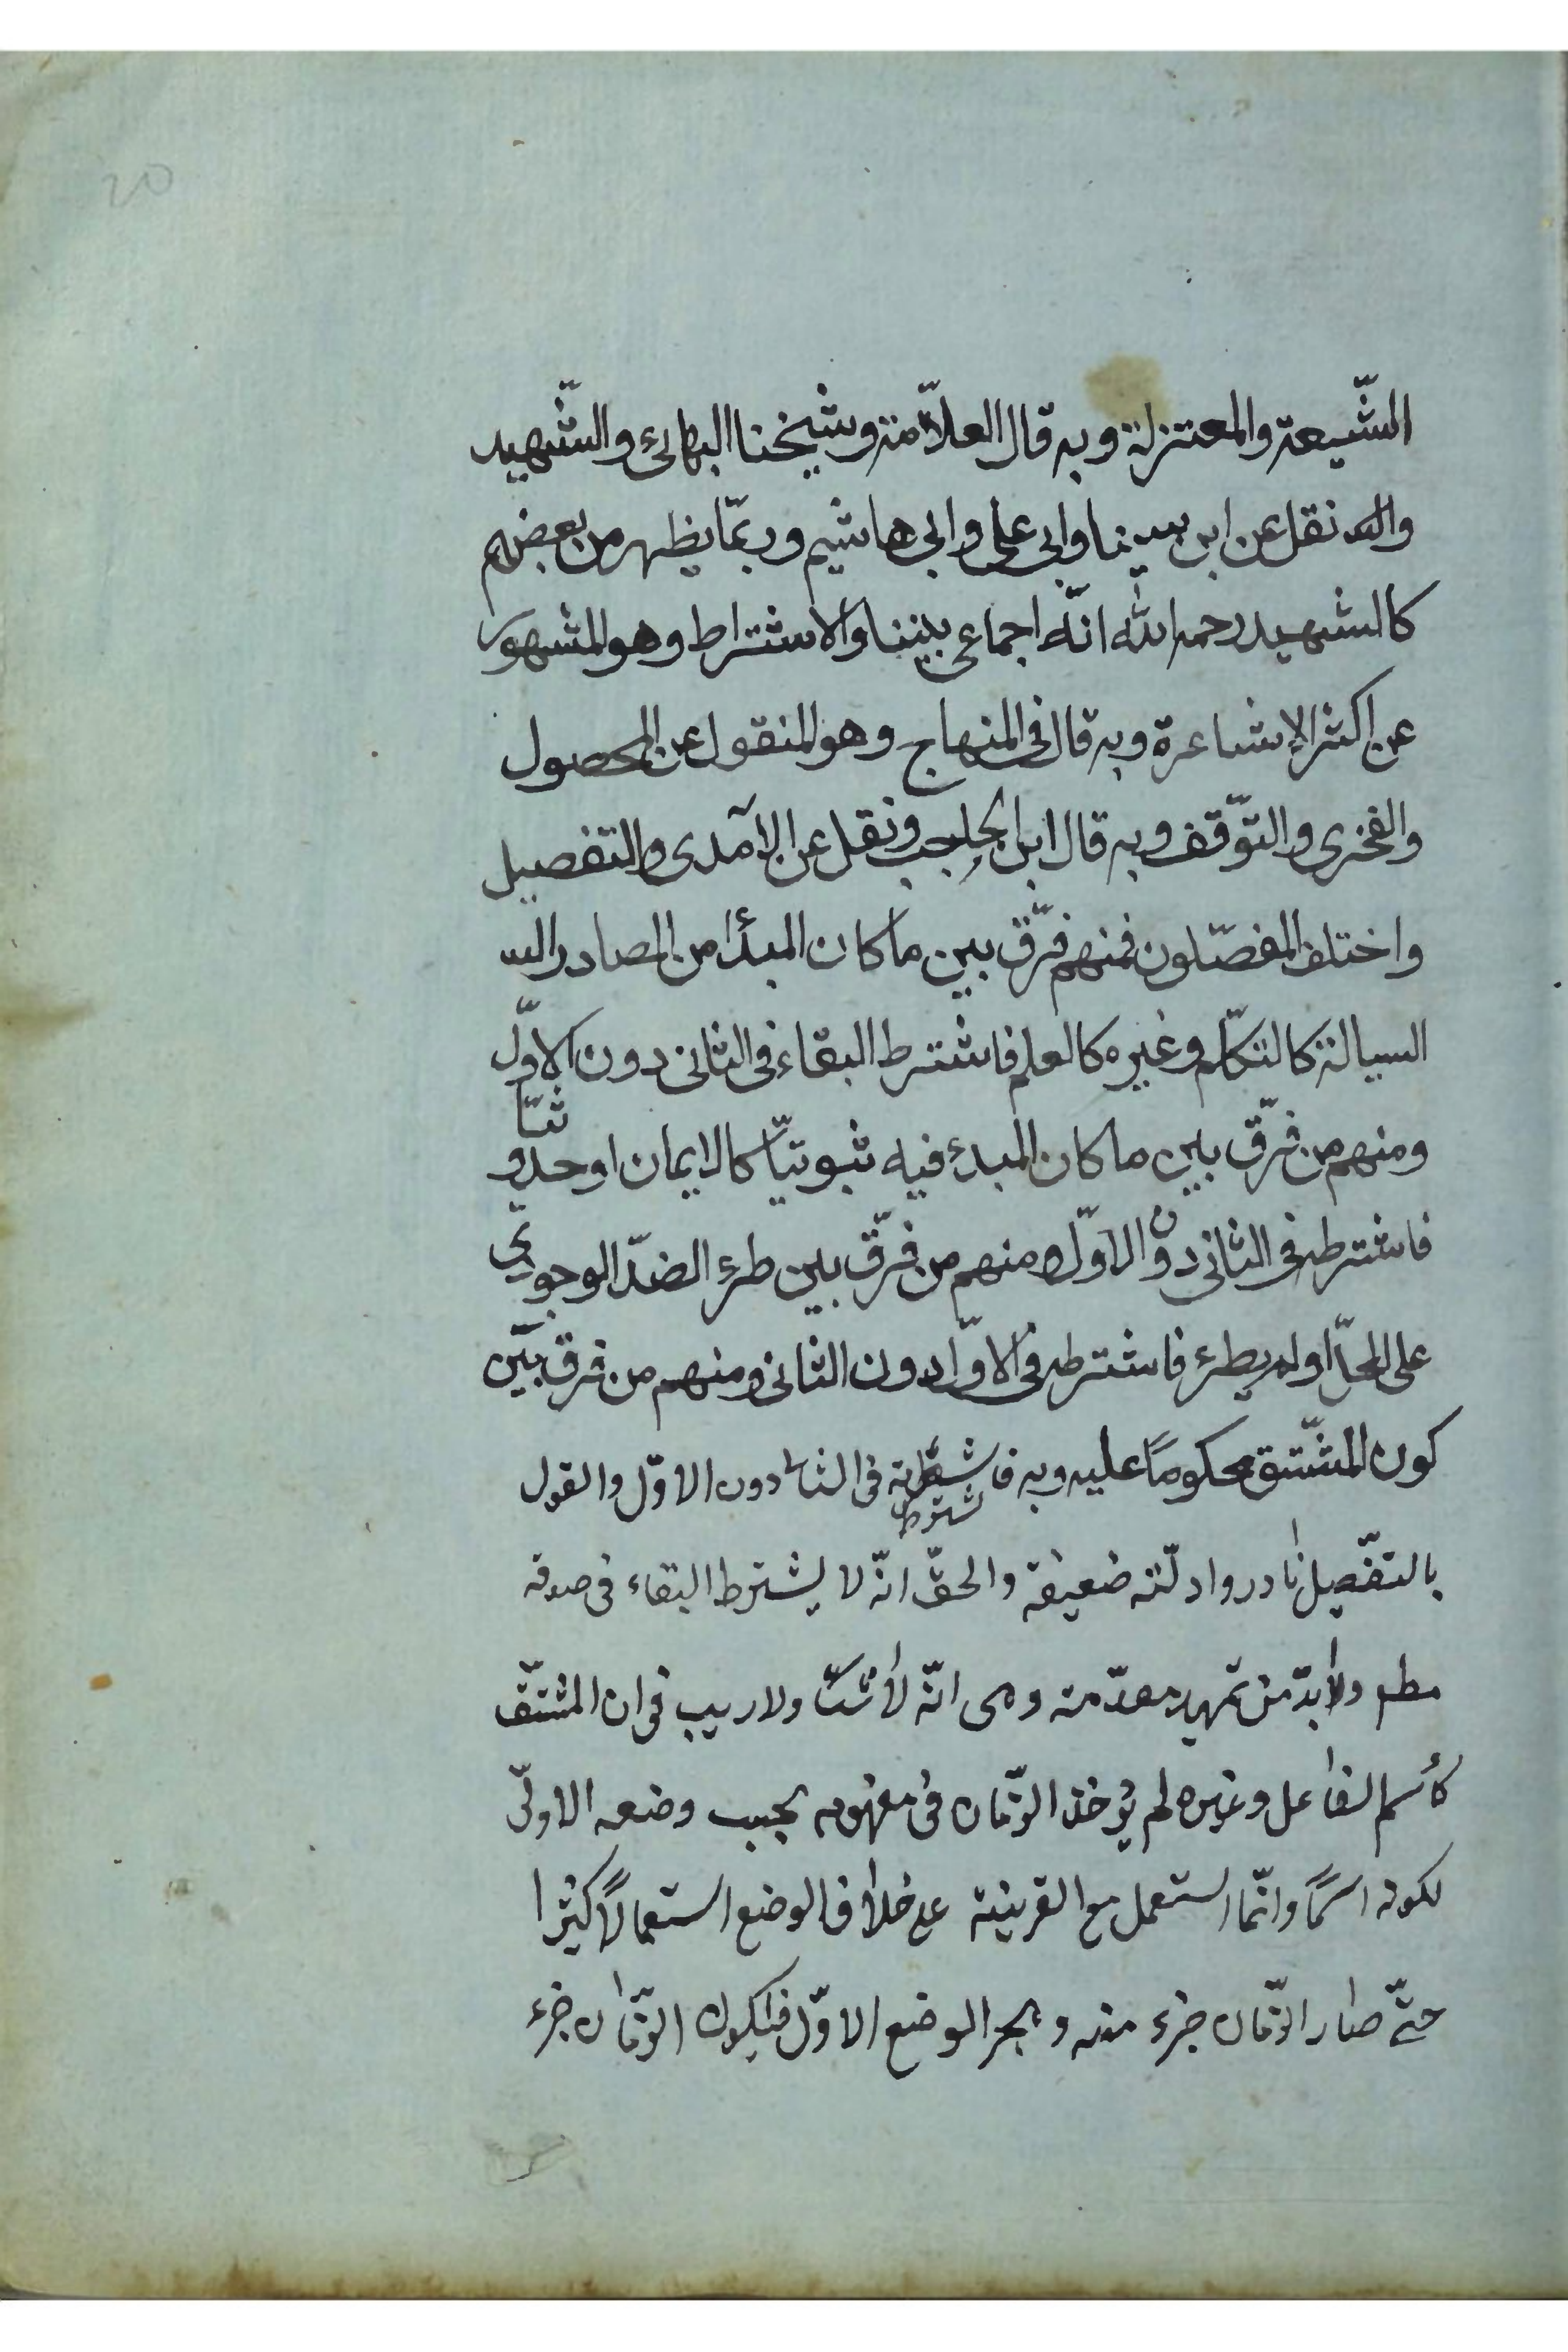 20
الشّيعة والمعتزلة وبه قال العلاّمة وشيخنا البهائى والشّهيد
واليه نقل عن ابن سينا وابى على وابى هاشم وربمّا يظهر من بعضهم
كالشهيد رحمه اللّه انّه اجماعى بيننا والاشتراط وهو المشهور
عن اكثر الاشاعرة وبه قال فى المنهاج وهو المنقول عن المحصول
والفخرى والتوّقف وبه قال ابن الحاجب ونقل عن الآمدى والتفصيل
واختلف المفصّلون فمنهم فرّق بين ما كان المبدأ من المصادر الس
السيالة كالتكلّم وغيره كالعلم فاشترط البقاء فى الثانى دون الاوّل
ومنهم من فرّق بين ما كان المبدء فيه ثبوتيّا كالايمان او حدوثيّا
فاشترطه فى الثانى دون الاوّل ومنهم من فرّق بين طرء الضدّ الوجودي
على المحلّ او لم يطرء فاشترطه فى الاوّل دون الثانى ومنهم من فرق بيّن
كون المشّتق محكوماً عليه وبه فاشترطه فى الثانى دون الاوّل والقول
بالتفّصيل نادر وادلّته ضعيفة والحقّ انّه لا يشترط البقاء فى صدقه
مطلقا ولابدّ من تمهيد مقدّمة وهى انّه لا شكّ ولا ريب فى ان المشتقّ
كأسم الفاعل وغيره لم يؤخذ الزّمان فى مفهومه بحسب وضعه الاولّى
لكونه اسمًا وانّما استعمل مع القرينة على خلاف الوضع استعمالاً كثيرا
حتّى صار الزّمان جزء منه وهجر الوضع الاوّل فيكون الزّمان جزء